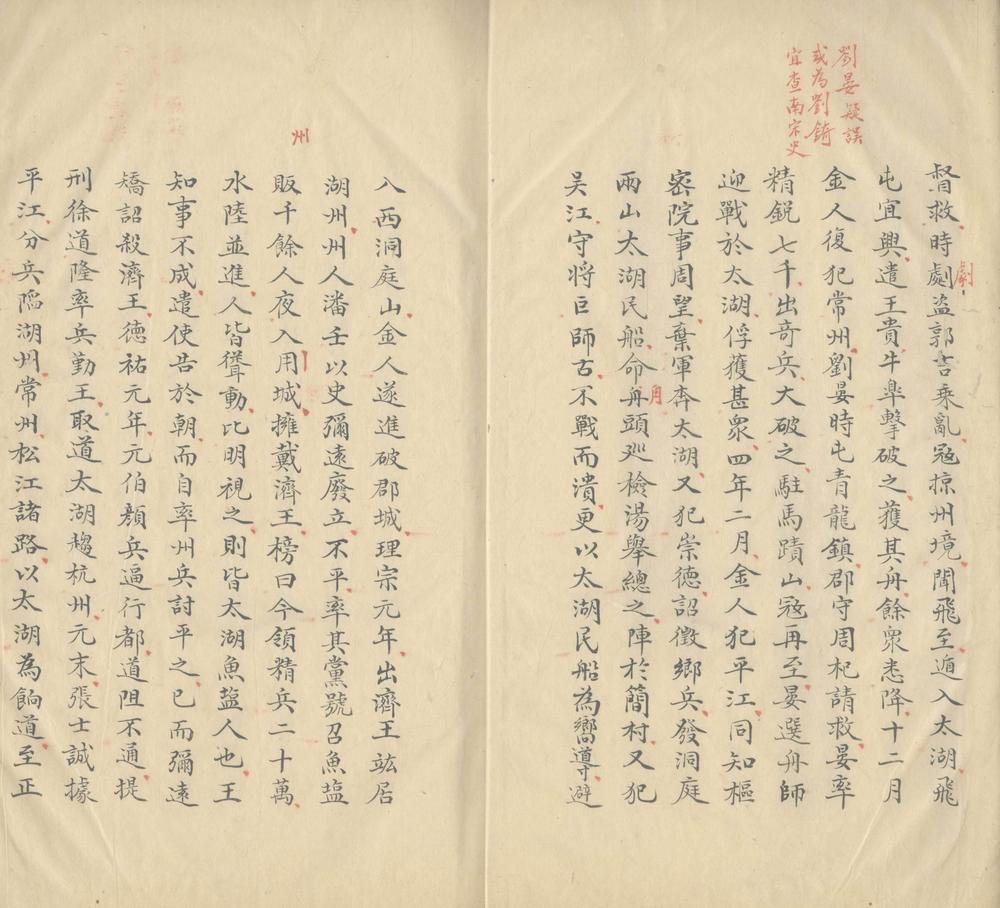 劉晏疑誤
或為劉錡
宜查南宋史
督救時劇盗郭吉乘亂寇掠州境聞飛至遁入太湖飛
劇
屯宜興遣王貴牛臯擊破之獲其舟餘衆悉降十二月
金人復犯常州劉晏時屯青龍鎮郡守周杞請救晏率
精鋭七千出奇兵大破之駐馬蹟山寇再至晏選舟師
迎戰於太湖俘獲甚衆四年二月金人犯平江同知樞
密院事周望棄軍奔太湖又犯崇德詔徵鄉兵發洞庭
兩山太湖民船命舟頭巡檢湯舉總之陣於簡村又犯
角
吳江守將巨師古不戰而潰更以太湖民船為嚮導避
入西洞庭山金人遂進破郡城理宗元年出濟王竑居
湖州州人潘壬以史彌遠廢立不平率其黨號召魚塩
販千餘人夜入用城擁戴濟王榜曰今領精兵二十萬
州
水陸並進人皆聳動比明視之則皆太湖魚塩人也王
知事不成遣使告於朝而自率州兵討平之已而彌遠
矯詔殺濟王德祐元年元伯顏兵逼行都道阻不通提
刑徐道隆率兵勤王取道太湖趨杭州元末張士誠據
平江分兵陷湖州常州松江諸路以太湖為餉道至正